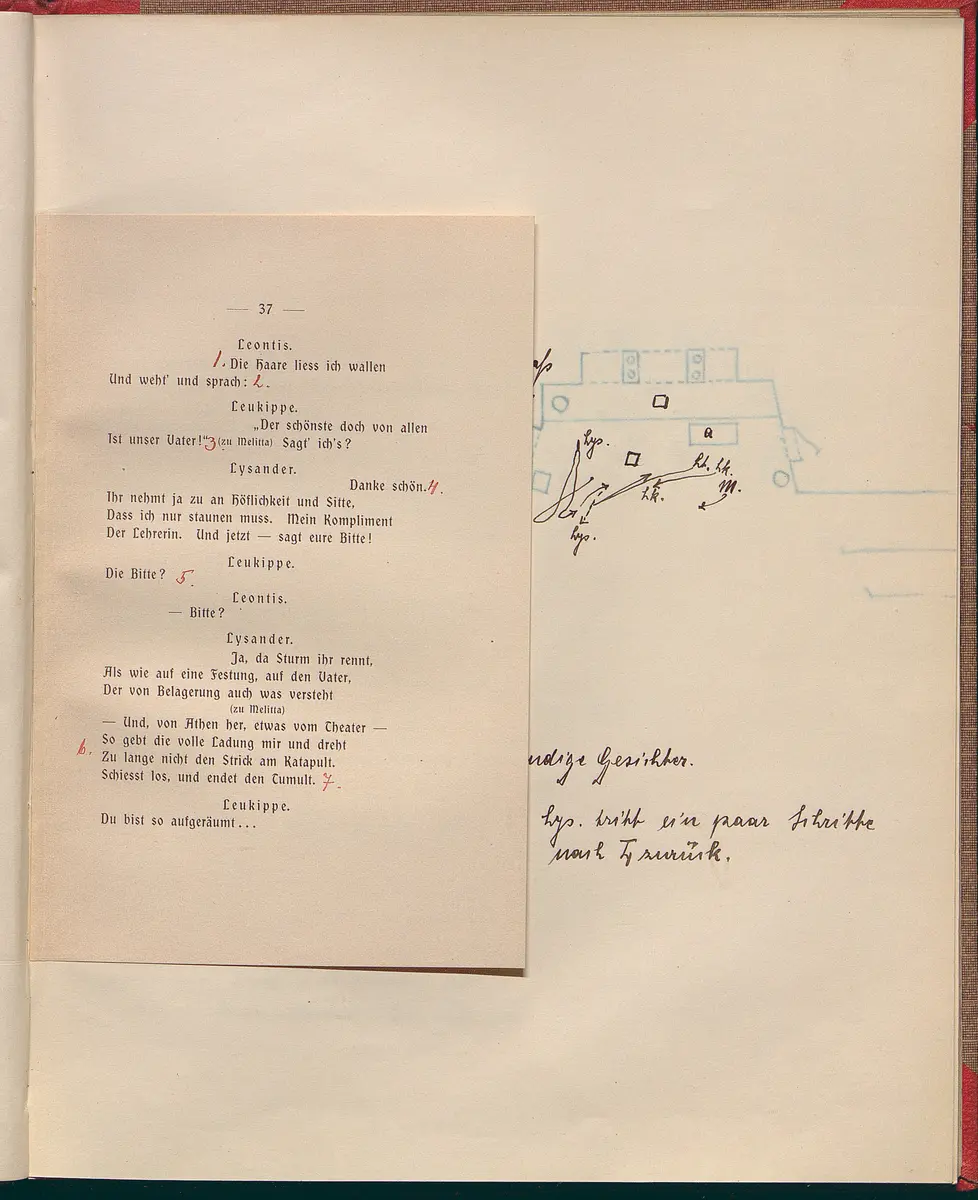 — 37 —
Leontis.
1. Die Haare liess ich wallen
Und weht' und sprach: 2.
Leukippe.
„Der schönste doch von allen
Ist unser Vater!“ 3 (zu Melitta) Sagt' ich's?
Lysander.
Danke schön. 4.
Ihr nehmt ja zu an Höflichkeit und Sitte,
Dass ich nur staunen muss. Mein Kompliment
Der Lehrerin. Und jetzt — sagt eure Bitte!
Leukippe.
Die Bitte? 5.
Leontis.
— Bitte?
Lysander.
Ja, da Sturm ihr rennt,
Als wie auf eine Festung, auf den Vater,
Der von Belagerung auch was versteht
(zu Melitta)
— Und, von Athen her, etwas vom Theater —
So gebt die volle Ladung mir und dreht
6. Zu lange nicht den Strick am Katapult.
Schiesst los, und endet den Tumult. 7.
Leukippe.
Du bist so aufgeräumt ...
Lys.
Lk.
Lk.
M.
Lys.
ndige Gesichter.
Lys. tritt ein paar Schritte
nach zurück.